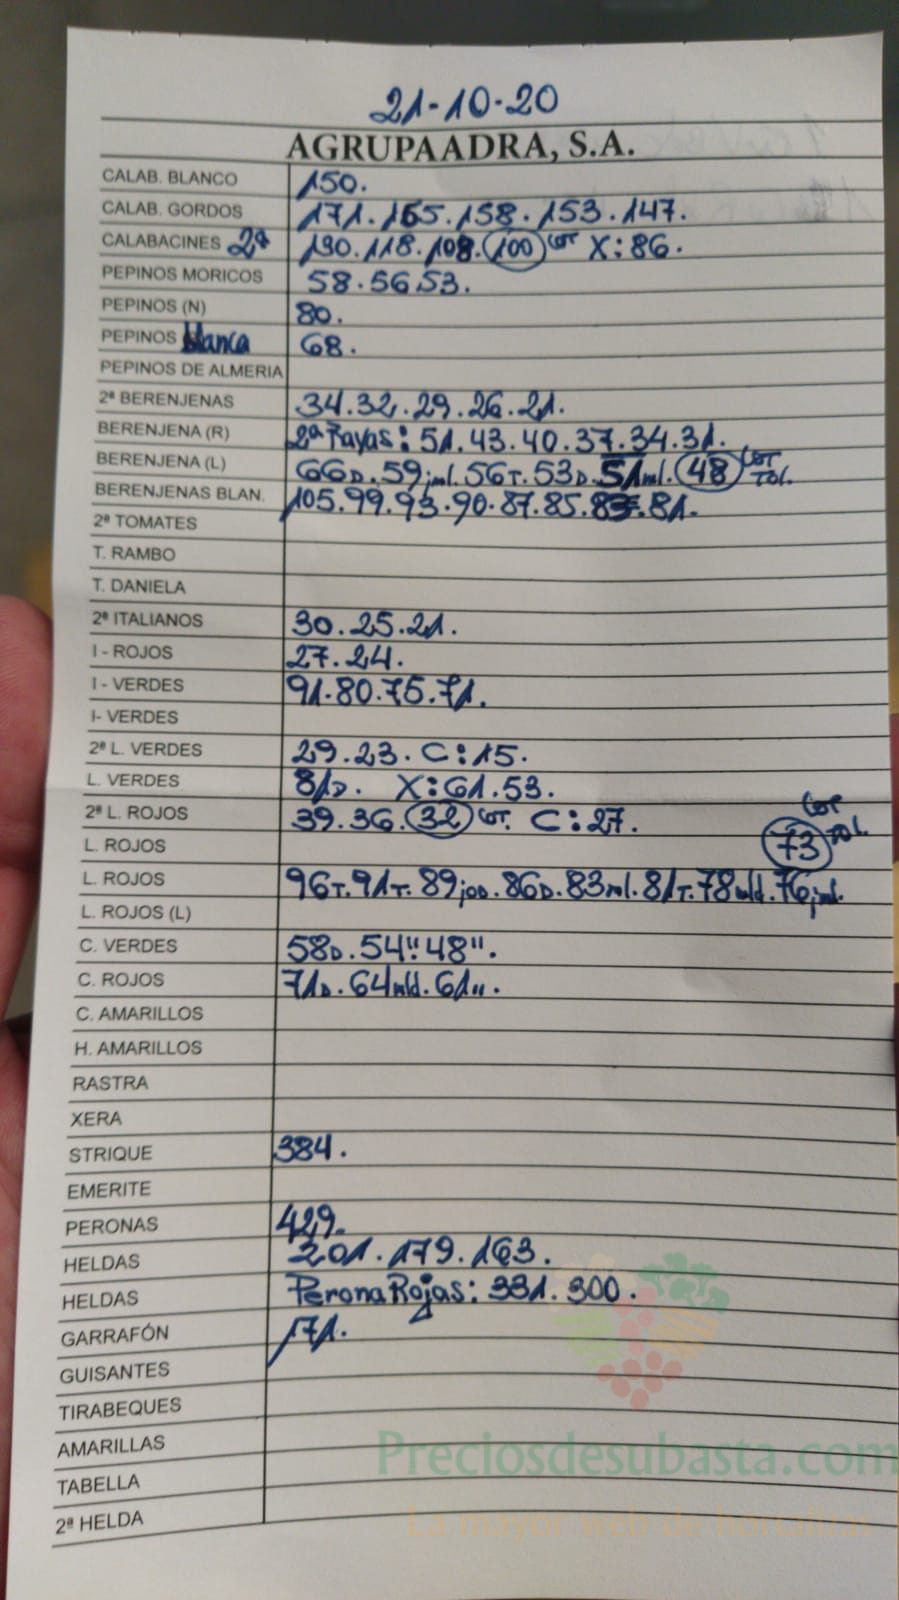 21-10-20
AGRUPAADRA, S.A.
CALAB. BLANCO 150.
CALAB. GORDOS 171. 165. 158. 153. 147.
CALABACINES 2ª 130. 118. 108. 100 COT X: 86.
PEPINOS MORICOS 58. 56. 53.
PEPINOS (N) 80.
PEPINOS blanca 68.
PEPINOS DE ALMERIA
2ª BERENJENAS 34. 32. 29. 26. 21.
BERENJENA (R) 2ª Rayas: 51. 43. 40. 37. 34. 31.
BERENJENA (L) 66D. 59jml. 56T. 53D. 51ml. 48 COT TOL.
BERENJENAS BLAN. 105. 99. 93. 90. 87. 85. 83. 81.
2ª TOMATES
T. RAMBO
T. DANIELA
2ª ITALIANOS 30. 25. 21.
I - ROJOS 27. 24.
I - VERDES 91. 80. 75. 71.
I- VERDES
2ª L. VERDES 29. 23. C: 15.
L. VERDES 81D. X: 61. 53.
2ª L. ROJOS 39. 36. 32 COT. C: 27.
L. ROJOS 73 COT TOL.
L. ROJOS 96T. 91T. 89joD. 86D. 83ml. 81T. 78mld. 76jml.
L. ROJOS (L)
C. VERDES 58D. 54". 48".
C. ROJOS 71D. 64mld. 61".
C. AMARILLOS
H. AMARILLOS
RASTRA
XERA
STRIQUE 384.
EMERITE
PERONAS 429.
HELDAS 201. 179. 163.
HELDAS Perona Rojas: 331. 300.
GARRAFÓN 171.
GUISANTES
TIRABEQUES
AMARILLAS
TABELLA
2ª HELDA
Preciosdesubasta.com
La mayor web de hortalizas